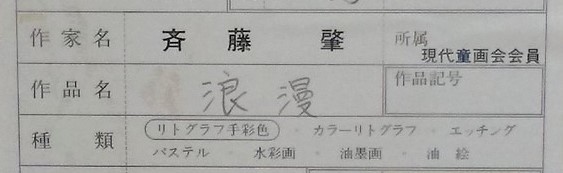 作家名 斉藤 肇 所属
現代童画会会員
作品名 浪漫 作品記号
種類 リトグラフ手彩色・カラーリトグラフ・エッチング
パステル・水彩画・油墨画・油絵